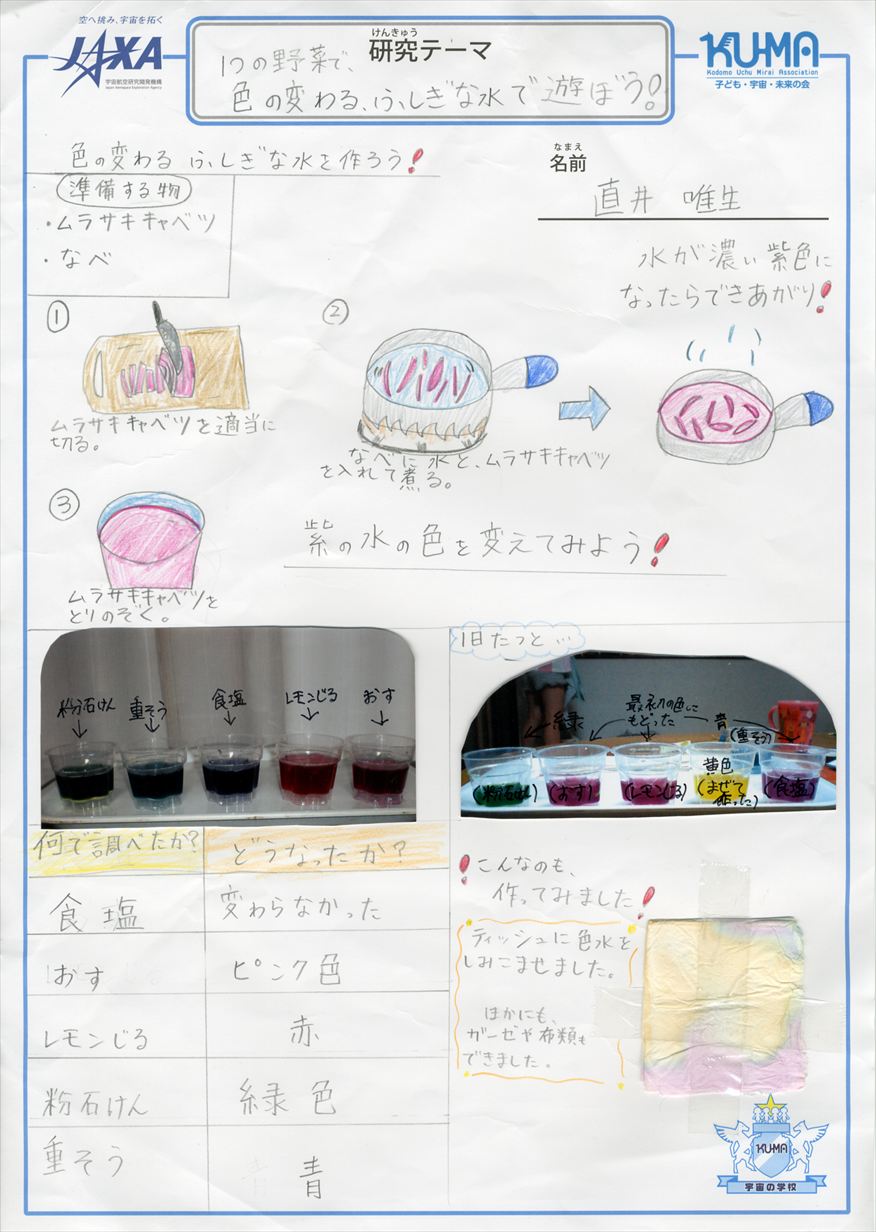 空へ挑み、宇宙を拓く
JAXA
宇宙航空研究開発機構
Japan Aerospace Exploration Agency
けんきゅう
研究テーマ
1つの野菜で、
色の変わる、ふしぎな水で遊ぼう!
KU-MA
Kodomo Uchu Mirai Association
子ども・宇宙・未来の会
色の変わるふしぎな水を作ろう!
なまえ
名前
直井 唯生
準備する物
・ムラサキキャベツ
・なべ
水が濃い紫色に
なったらできあがり!
①
ムラサキキャベツを適当に
切る。
②
なべに水と、ムラサキキャベツ
を入れて煮る。
③
ムラサキキャベツを
とりのぞく。
紫の水の色を変えてみよう!
粉石けん
重そう
食塩
レモンじる
おす
1日たつと…
緑
最初の色に
もどった
青
(重そう)
(粉石けん)
(おす)
(レモンじる)
黄色
(まぜて
作った)
(食塩)
何で調べたか?
どうなったか?
食塩
変わらなかった
おす
ピンク色
レモンじる
赤
粉石けん
緑色
重そう
青
!こんなのも、
作ってみました!
ティッシュに色水を
しみこませました。
ほかにも、
ガーゼや布類も
できました。
KU-MA
宇宙の学校